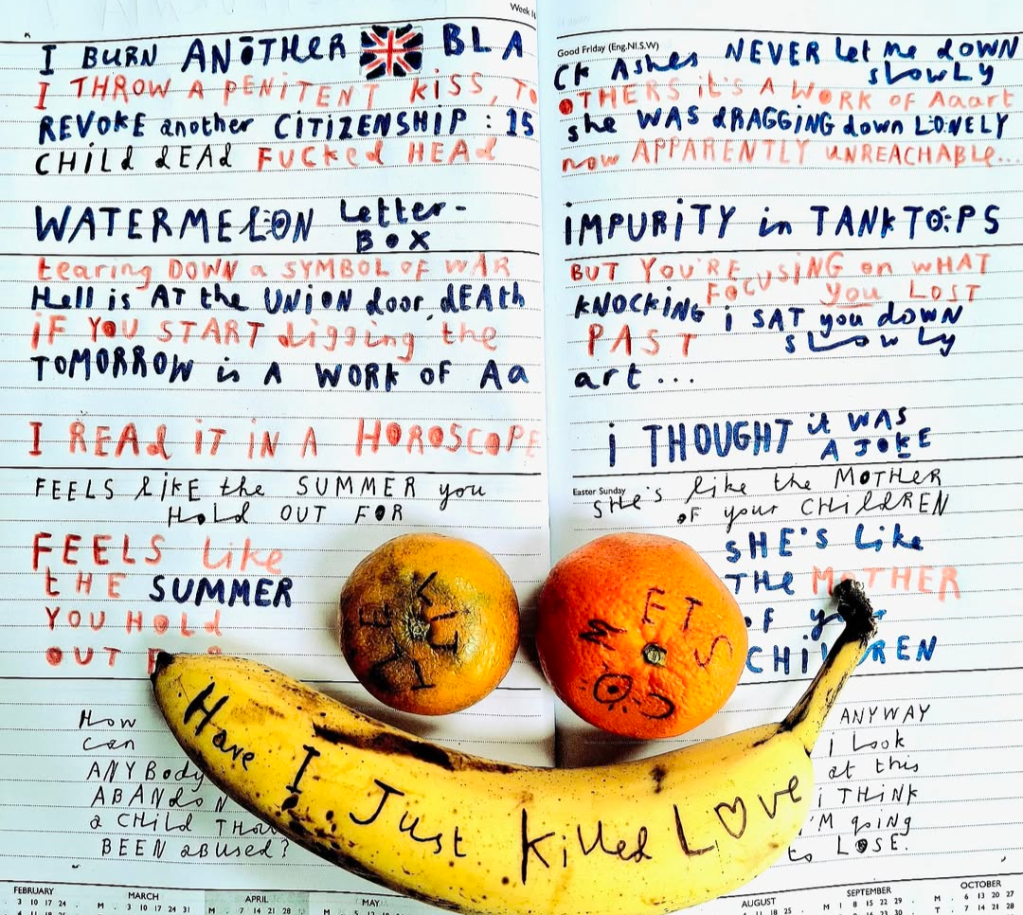 Week 16
I BURN ANOTHER BLA
I THROW A PENITENT KISS, TO
REVOKE another CITIZENSHIP : 15
CHILd dEAd FUCKed HEAd
WATERMELON Letter-
BOX
tearing DOWN a SYMBOL OF WAR
Hell is AT the UNION door, dEAth
iF YOU START digging the
TOMORROW is A WORK OF Aa
I READ iT IN A HOROSCOPE
FEELS LiKE the SUMMER you
HOLD OUT FOR
FEELS Like
tHE SUMMER
YOU HOLd
OUT
How
can
ANYBody
ABANdoN
a CHILD
BEEN abused?
Good Friday (Eng.NI.S,W)
CK Ashes NEVER let me dOWN
sLowLy
OTHERS iT's A WORK OF Aaart
she WAS dRAGGING down LONELY
now APPARENTLY UNREACHABLE...
iMPURiTY in TANKTOPS
BUT YOU'RE FOCUSING on wHAT
you LOST
KNOCKING i SAT you dOWN
PAST sLowLy
art...
i THOUGHT it WAS
A JOKE
Easter Sunday
SHE'S like the MOTHER
OF your CHILdREN
SHE'S Like
THE MOTHER
OF
CHILDREN
ANYWAY
i Look
at this
i THiNK
I'M going
to LOSE.
COMETS
Have I Just Killed LOVe
FEBRUARY MARCH APRIL MAY AUGUST SEPTEMBER OCTOBER
3 10 17 24 M 3 10 17 24 31 M 7 14 21 28 M M 1 8 15 22 29 M 6 13 20 27